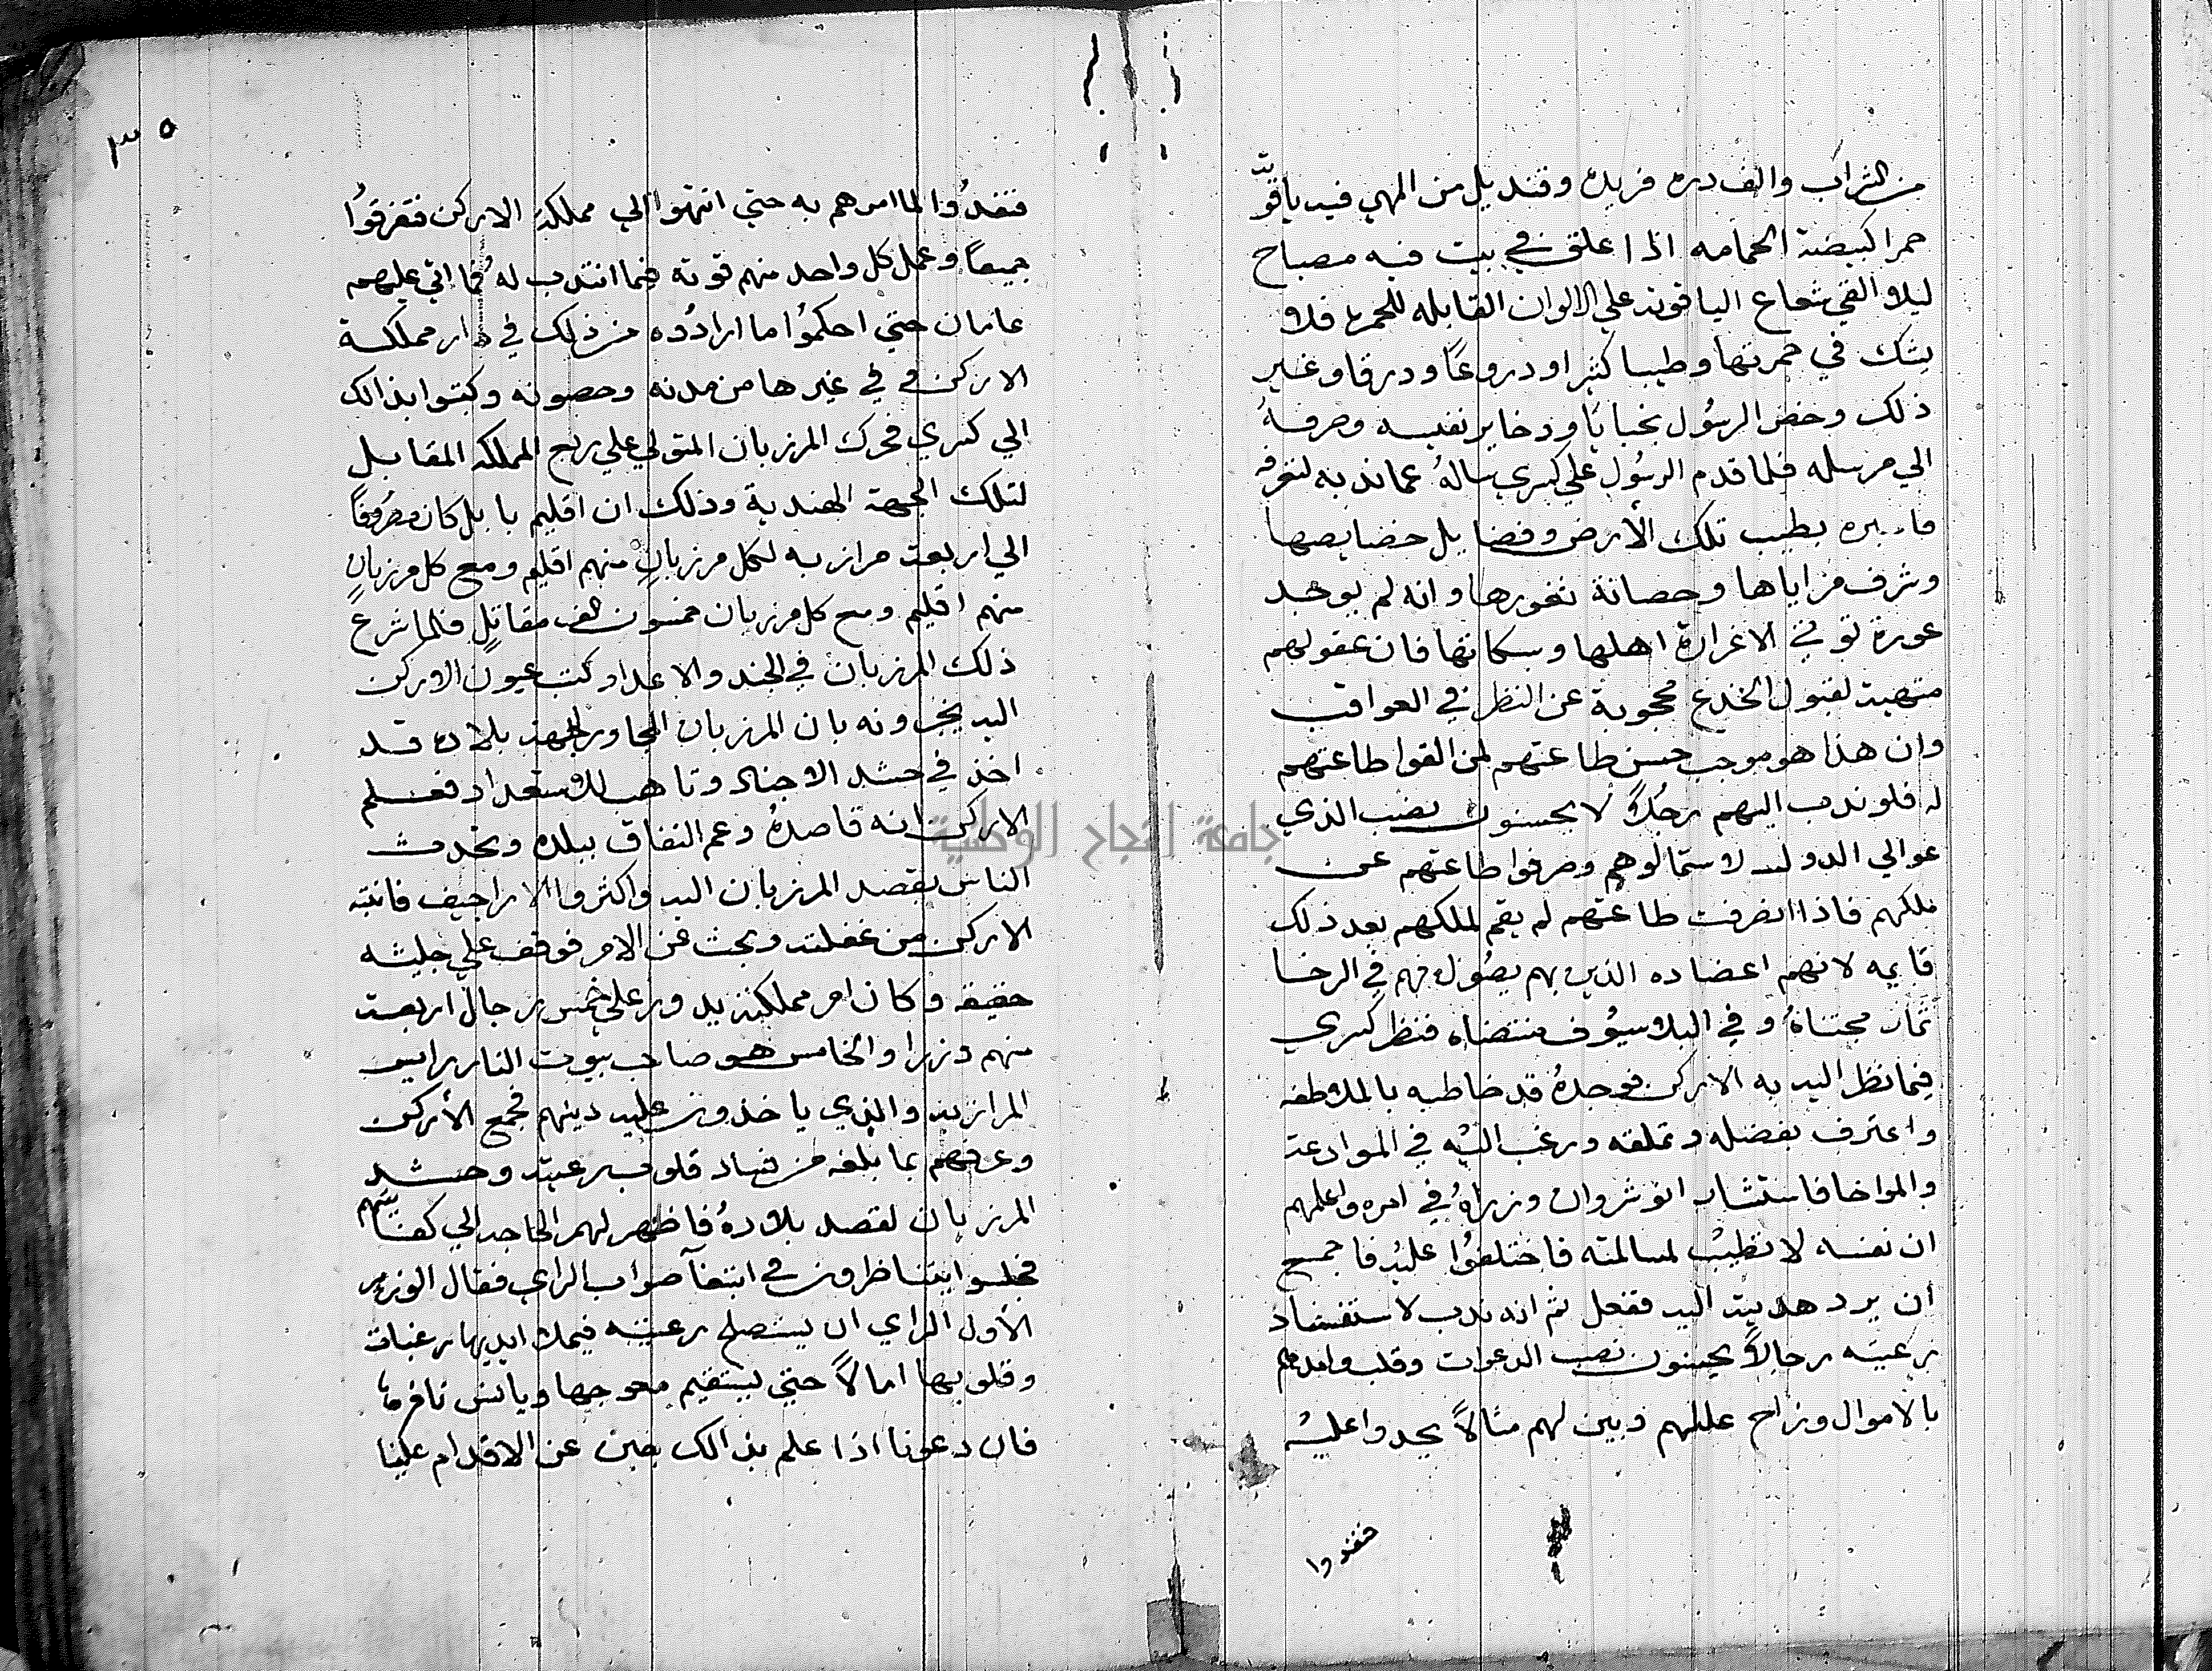 من التراب والف دره فريده وقنديل من المهي فيه ياقوت
حمرا كبيضة الحمامه اذا علق في بيت فيه مصباح
ليلا القي شعاع الياقوته علي الالوان القابله للحمره فلا
يشك في حمرتها وطيبا كثيرا ودروعًا ودرقا وغير
ذلك وخص الرسُول بخبايًا وذخاير نفيسه وصرفهُ
الي مرسله فلما قدم الرسُول علي كسري سالهُ عما ندبه لتعرفه
فاخبره بطيب تلك الأرض وفضايل خصايصها
وشرف مزاياها وحصانة ثغورها وانه لم يوجد
عورة توتي الا غرارة اهلها وسكانها فان عقولهم
متهيية لقبول الخدع محجوبة عن النظر في العواقب
وان هذا هو موجب حسن طاعتهم لمن القوا طاعتهم
له فلو ندب اليهم رجُلاً لا يحسنون نصب الذي
عوالي الدول لاستمالوهم وصرفوا طاعتهم عن
ملكهم فاذا انصرفت طاعتهم لم يقم لملكهم بعد ذلك
قايمه لانهم اعضاده الذين بهم يصُول فهم في الرخا
ثمار مجتناهُ وفي البلا سيُوف منتضاه فنظر كسري
فيما نظر اليه به الاركن فوجدهُ قد خاطبه بالملاطفه
واعترف بفضله وتملقه ورغب اليْه في الموادعة
والمواخا فاستشار انوشروان وزراهُ في امره واعلمهم
ان نفسه لا تطيبُ لمسالمته فاختلفُوا عليْه فاجمع
أن يرد هديته اليه ففعل ثم انه ندب لاستفساد
رعيته رجالاً يحسنون نصب الدعوات وقلب وامدهم
بالاموال وزاح عللهم وبين لهم مثالاً يحدوا عليْه
فنفدوا
٣٥
فنفدُوا لما امرهم به حتي انتهوا الي مملكة الاركن فتفرقوُا
جميعاً وعمل كل واحد منهم قوته فيما انتدب لهُ فما اتي عليهم
عامان حتي احكمُوا ما ارادُوه من ذلك في دار مملكة
الاركن وفي غيرها من مدنه وحصونه وكتبوا بذالك
الي كسري فحرك المرزبان المتولي علي ربع المملكه المقابل
لتلك الجهة الهندية وذلك ان اقليم بابل كان مصُروفاً
الي اربعة مرازبه لكل مرزبانٍ منهم اقليم ومع كل مرزبانٍ
منهم اقليم ومع كل مرزبان خمسون الف مقاتلٍ فلما شرع
ذلك المرزبان في الجند والاعداد كتب عيون الاركن
اليه يخبرونه بان المرزبان المجاور لجهة بلاده قد
اخذ في حشد الاجناد وتاهب للاستعداد فعلم
الاركن انه قاصدهُ وعم النفاق ببلده وتحدث
الناس بقصد المرزبان اليه واكثروا الاراجيف فانتبه
الاركن من غفلته وبحث عن الامر فوقف علي جليته
حقيقه وكان امر مملكته يدور علي خمس رجال اربعة
منهم وزرا والخامس هو صاحب بيوت النار رايس
المرازبه والذي ياخذون عليه دينهم فجمع الأركن
وعرفهم بما بلغه من فساد قلوب رعيته وحشد
المرزبان لقصد بلادهُ فاظهر لهم الحاجه الي كفايتهم
فجلسوا يتناظرون في ابتغآ صواب الراي فقال الوزير
الأول الراي ان يستصلح رعيته فيملا ايديها رغبات
وقلوبها امالاً حتي يستقيم معوجها ويانس نافرها
فان دعونا اذا علم بذالك يجبن عن الاقدام علينا
جامعة النجاح الوطنية